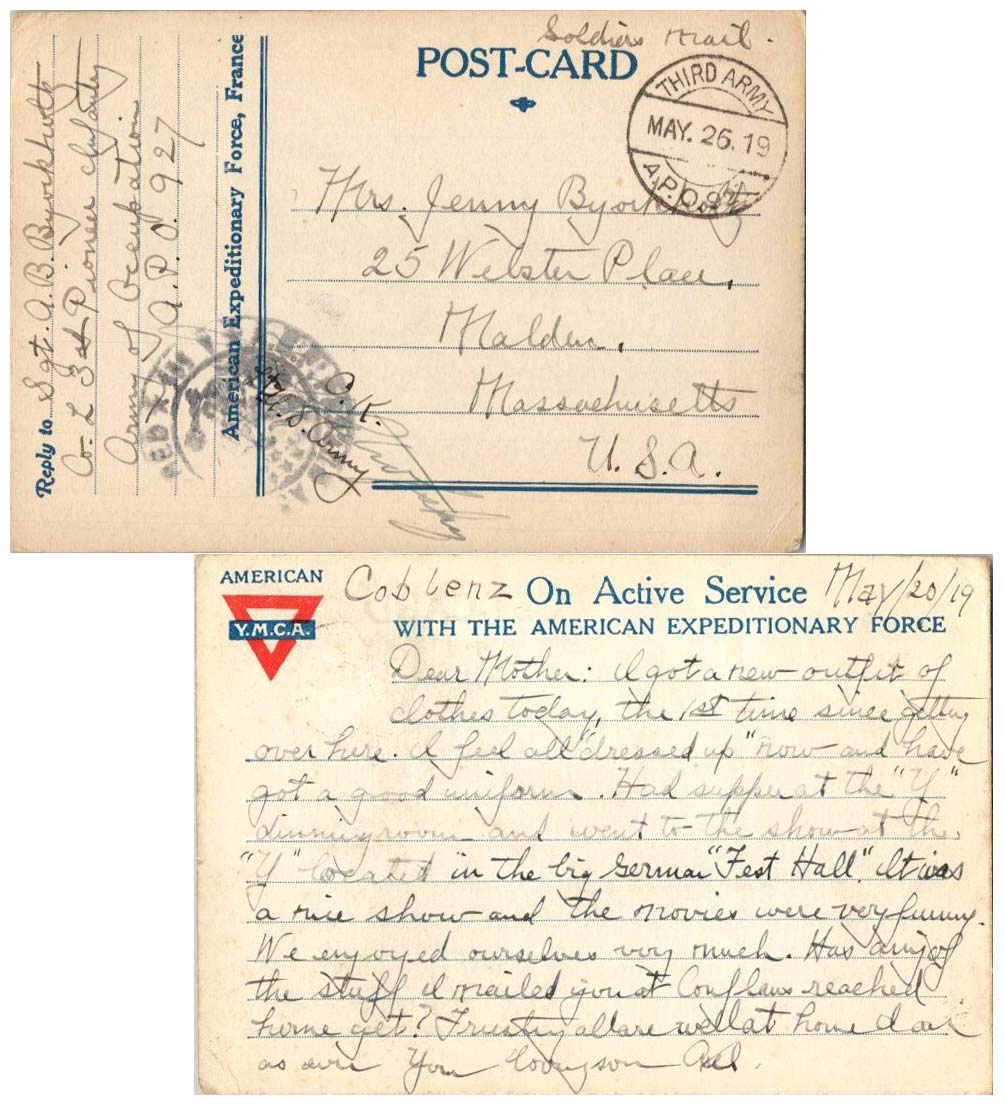 Soldiers Mail.
POST-CARD
THIRD ARMY
MAY. 26. 19
A.P.O.
Mrs. Jenny
25 Webster Place,
Malden,
Massachusetts
U. S. A.
Reply to Sgt. A. B.
Co- L 3rd Pioneer Infantry
Army of Occupation
A. P. O. 927
American Expeditionary Force, France
O. K.
U. S. Army
AMERICAN
Y.M.C.A.
Coblenz On Active Service May/20/19
WITH THE AMERICAN EXPEDITIONARY FORCE
Dear Mother: I got a new outfit of
clothes today, the 1st time since getting
over here. I feel all "dressed up" now and have
got a good uniform. Had supper at the "Y"
dinning room and went to the show at the
"Y" located in the big German "Fest Hall". It was
a nice show and the movies were very funny.
We enjoyed ourselves very much. Has any of
the stuff I mailed you at Conflans reached
home yet? Trusting all are well at home I am
as ever Your loving son Axel.